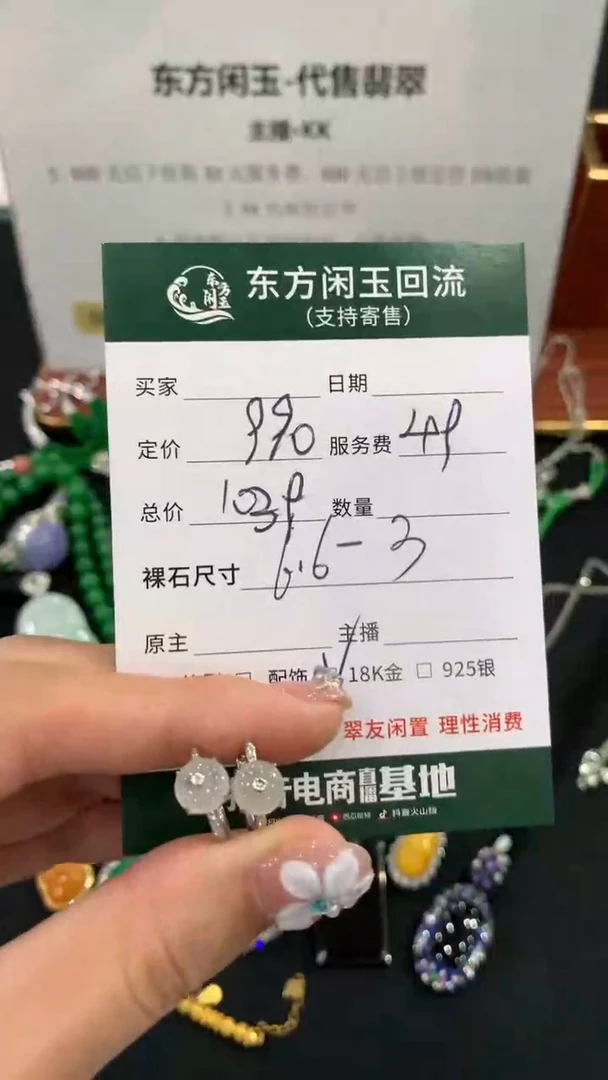 东方闲玉-代售翡翠
主播-KK
东方闲玉
东方闲玉回流
(支持寄售)
买家 日期
定价 990 服务费 49
总价 1039 数量
裸石尺寸 6.6-3
原主 主播
配饰 18K金 □ 925银
翠友闲置 理性消费
电商直播基地
西瓜视频 抖音火山版